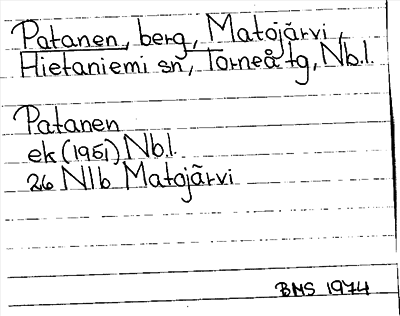 Patanen, berg, Matojärvi,
Hietaniemi sn, Torneå tg, Nb.l.
Patanen
ek (1951) Nb.l.
26 Nlb Matojärvi
BMS 1974